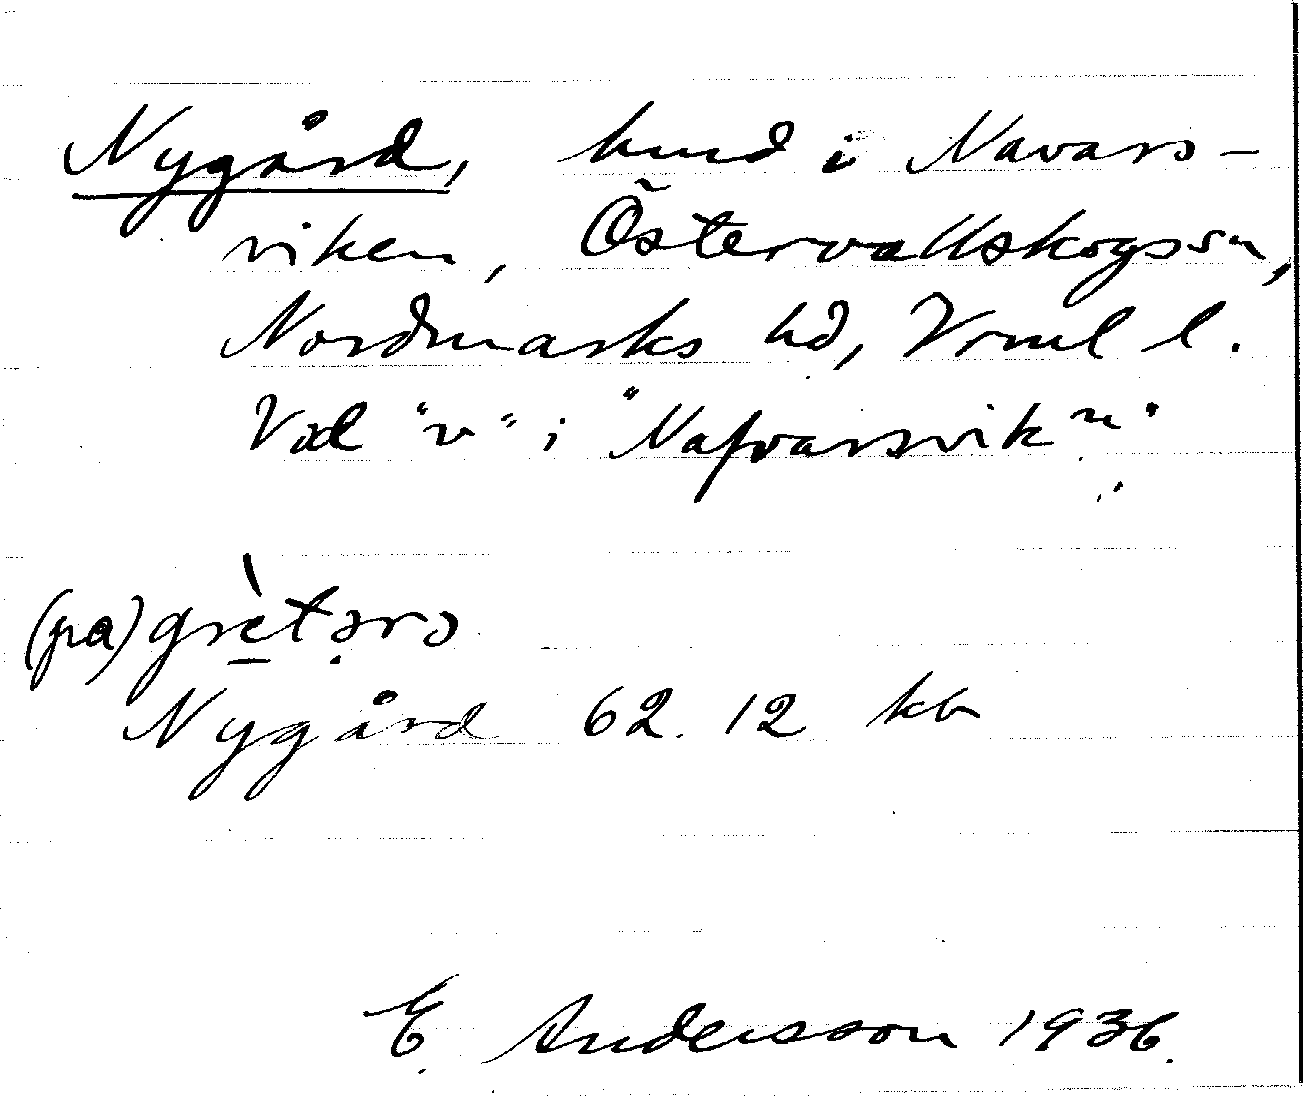 Nygård, hmd i Navars-
viken, Östervallskogs sn,
Nordmarks hd, Vrml l.
Vid "v" i "Nafvarsvikn"
(på) grètərə
Nygård 62. 12 kb
E. Andersson 1936.